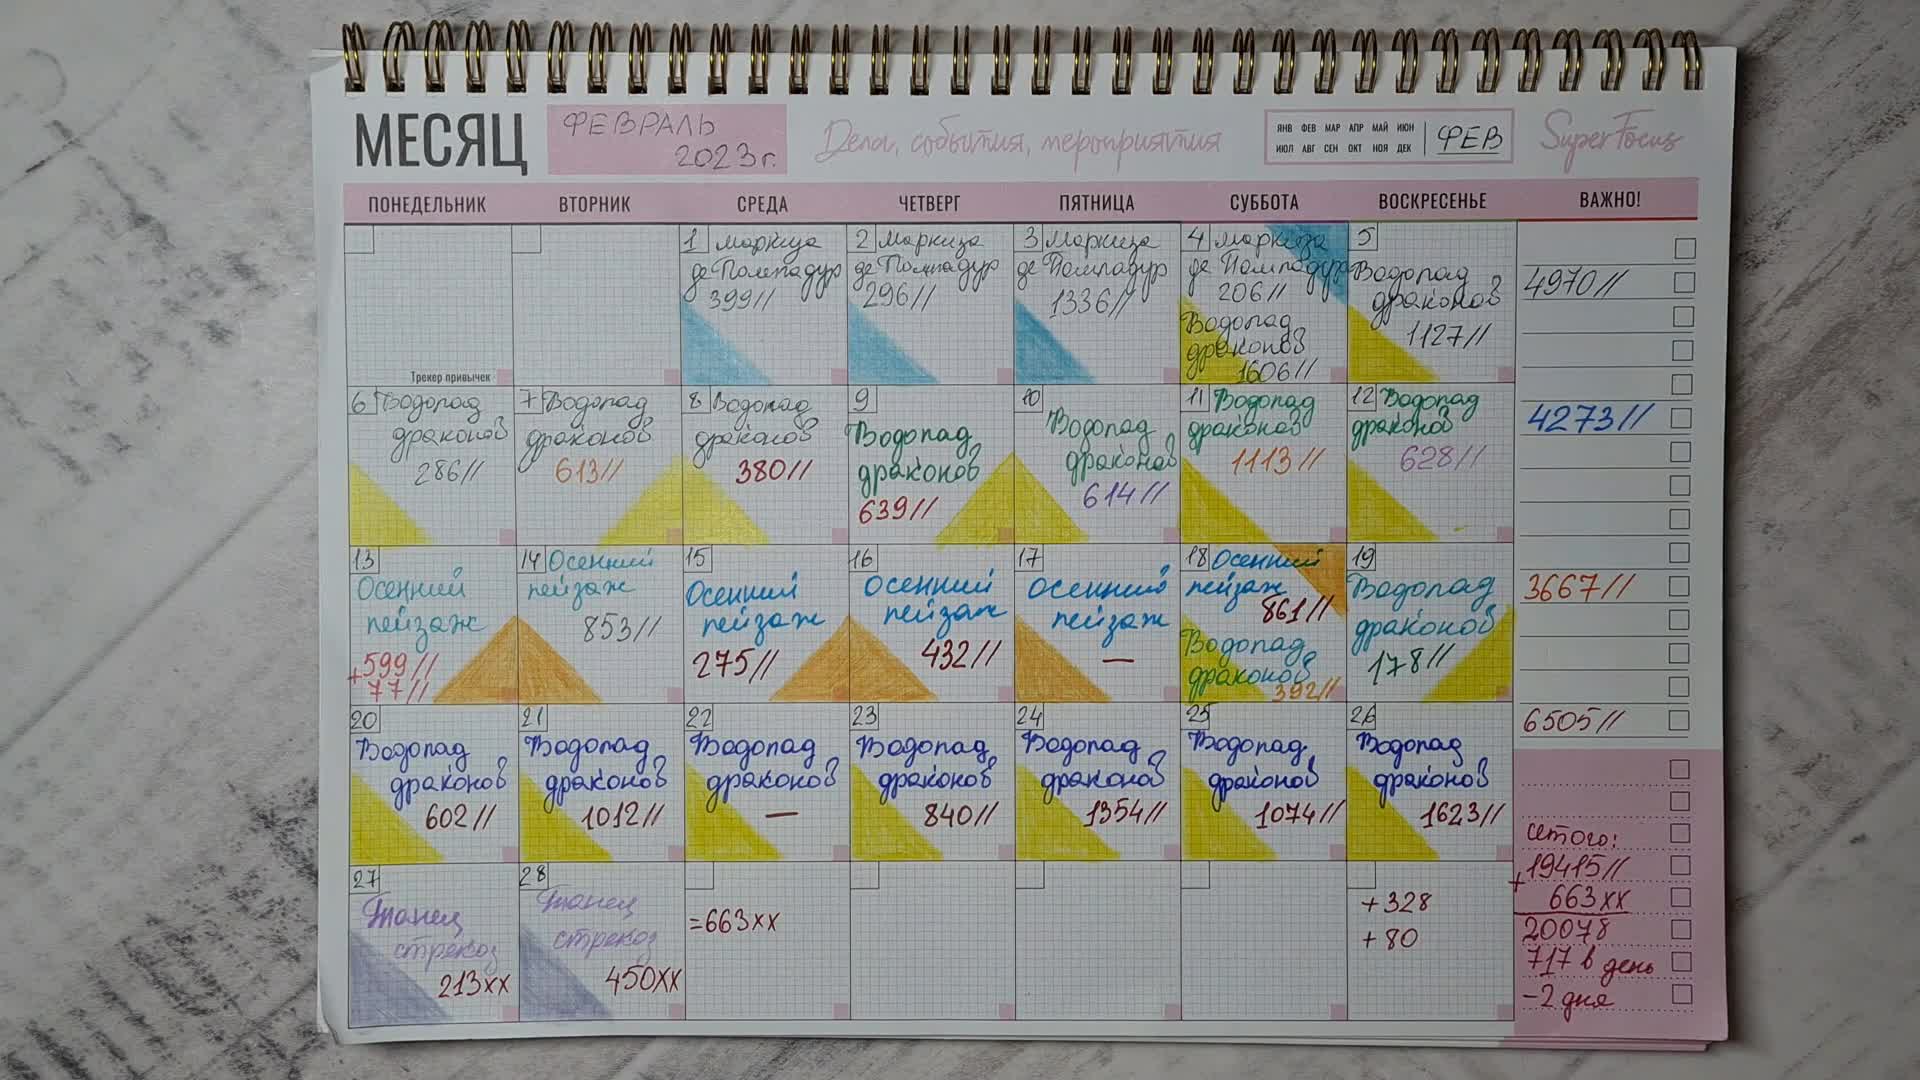 МЕСЯЦ
ФЕВРАЛЬ
2023г.
Дела, события, мероприятия
ЯНВ ФЕВ МАР АПР МАЙ ИЮН
ИЮЛ АВГ СЕН ОКТ НОЯ ДЕК
ФЕВ
SuperFocus
ПОНЕДЕЛЬНИК ВТОРНИК СРЕДА ЧЕТВЕРГ ПЯТНИЦА СУББОТА ВОСКРЕСЕНЬЕ ВАЖНО!
Трекер привычек
1 Маркиза
де Помпадур
399//
2 Маркиза
де Помпадур
296//
3 Маркиза
де Помпадур
1336//
4 Маркиза
де Помпадур
206//
Водопад
драконов
1606//
5
Водопад
драконов
1127//
4970//
6 Водопад
драконов
286//
7 Водопад
драконов
613//
8 Водопад
драконов
380//
9
Водопад
драконов
639//
10
Водопад
драконов
614//
11 Водопад
драконов
1113//
12 Водопад
драконов
628//
4273//
13
Осенний
пейзаж
+599//
77//
14 Осенний
пейзаж
853//
15
Осенний
пейзаж
275//
16
Осенний
пейзаж
432//
17
Осенний
пейзаж
—
18 Осенний
пейзаж
861//
Водопад
драконов
392//
19
Водопад
драконов
178//
3667//
20
Водопад
драконов
602//
21
Водопад
драконов
1012//
22
Водопад
драконов
—
23
Водопад
драконов
840//
24
Водопад
драконов
1354//
25
Водопад
драконов
1074//
26
Водопад
драконов
1623//
6505//
27
Танец
стрекоз
213xx
28
Танец
стрекоз
450xx
=663xx
+328
+80
итого:
19415//
+ 663xx
20078
717 в день
-2 дня